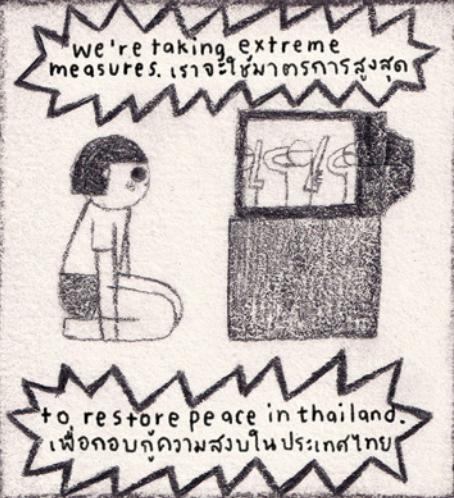 we're taking extreme
measures. เราจะใช้มาตรการสูงสุด
to restore peace in thailand.
เพื่อกอบกู้ความสงบในประเทศไทย